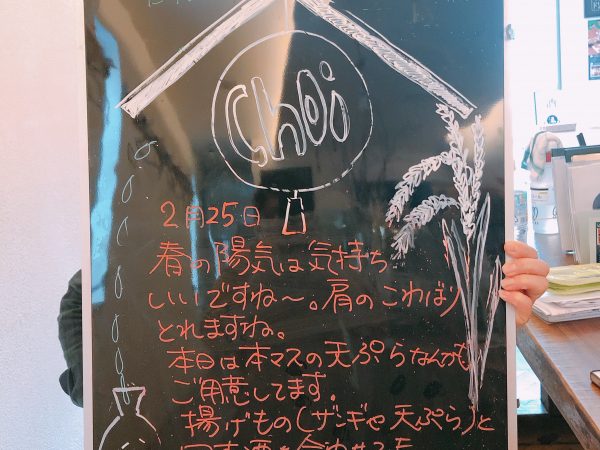 Choi
2月25日
春の陽気は気持ち
いいですね〜。肩のこわばり
とれますね。
本日は本マスの天ぷらなんかも
ご用意してます。
揚げもの(ザンギや天ぷら)と